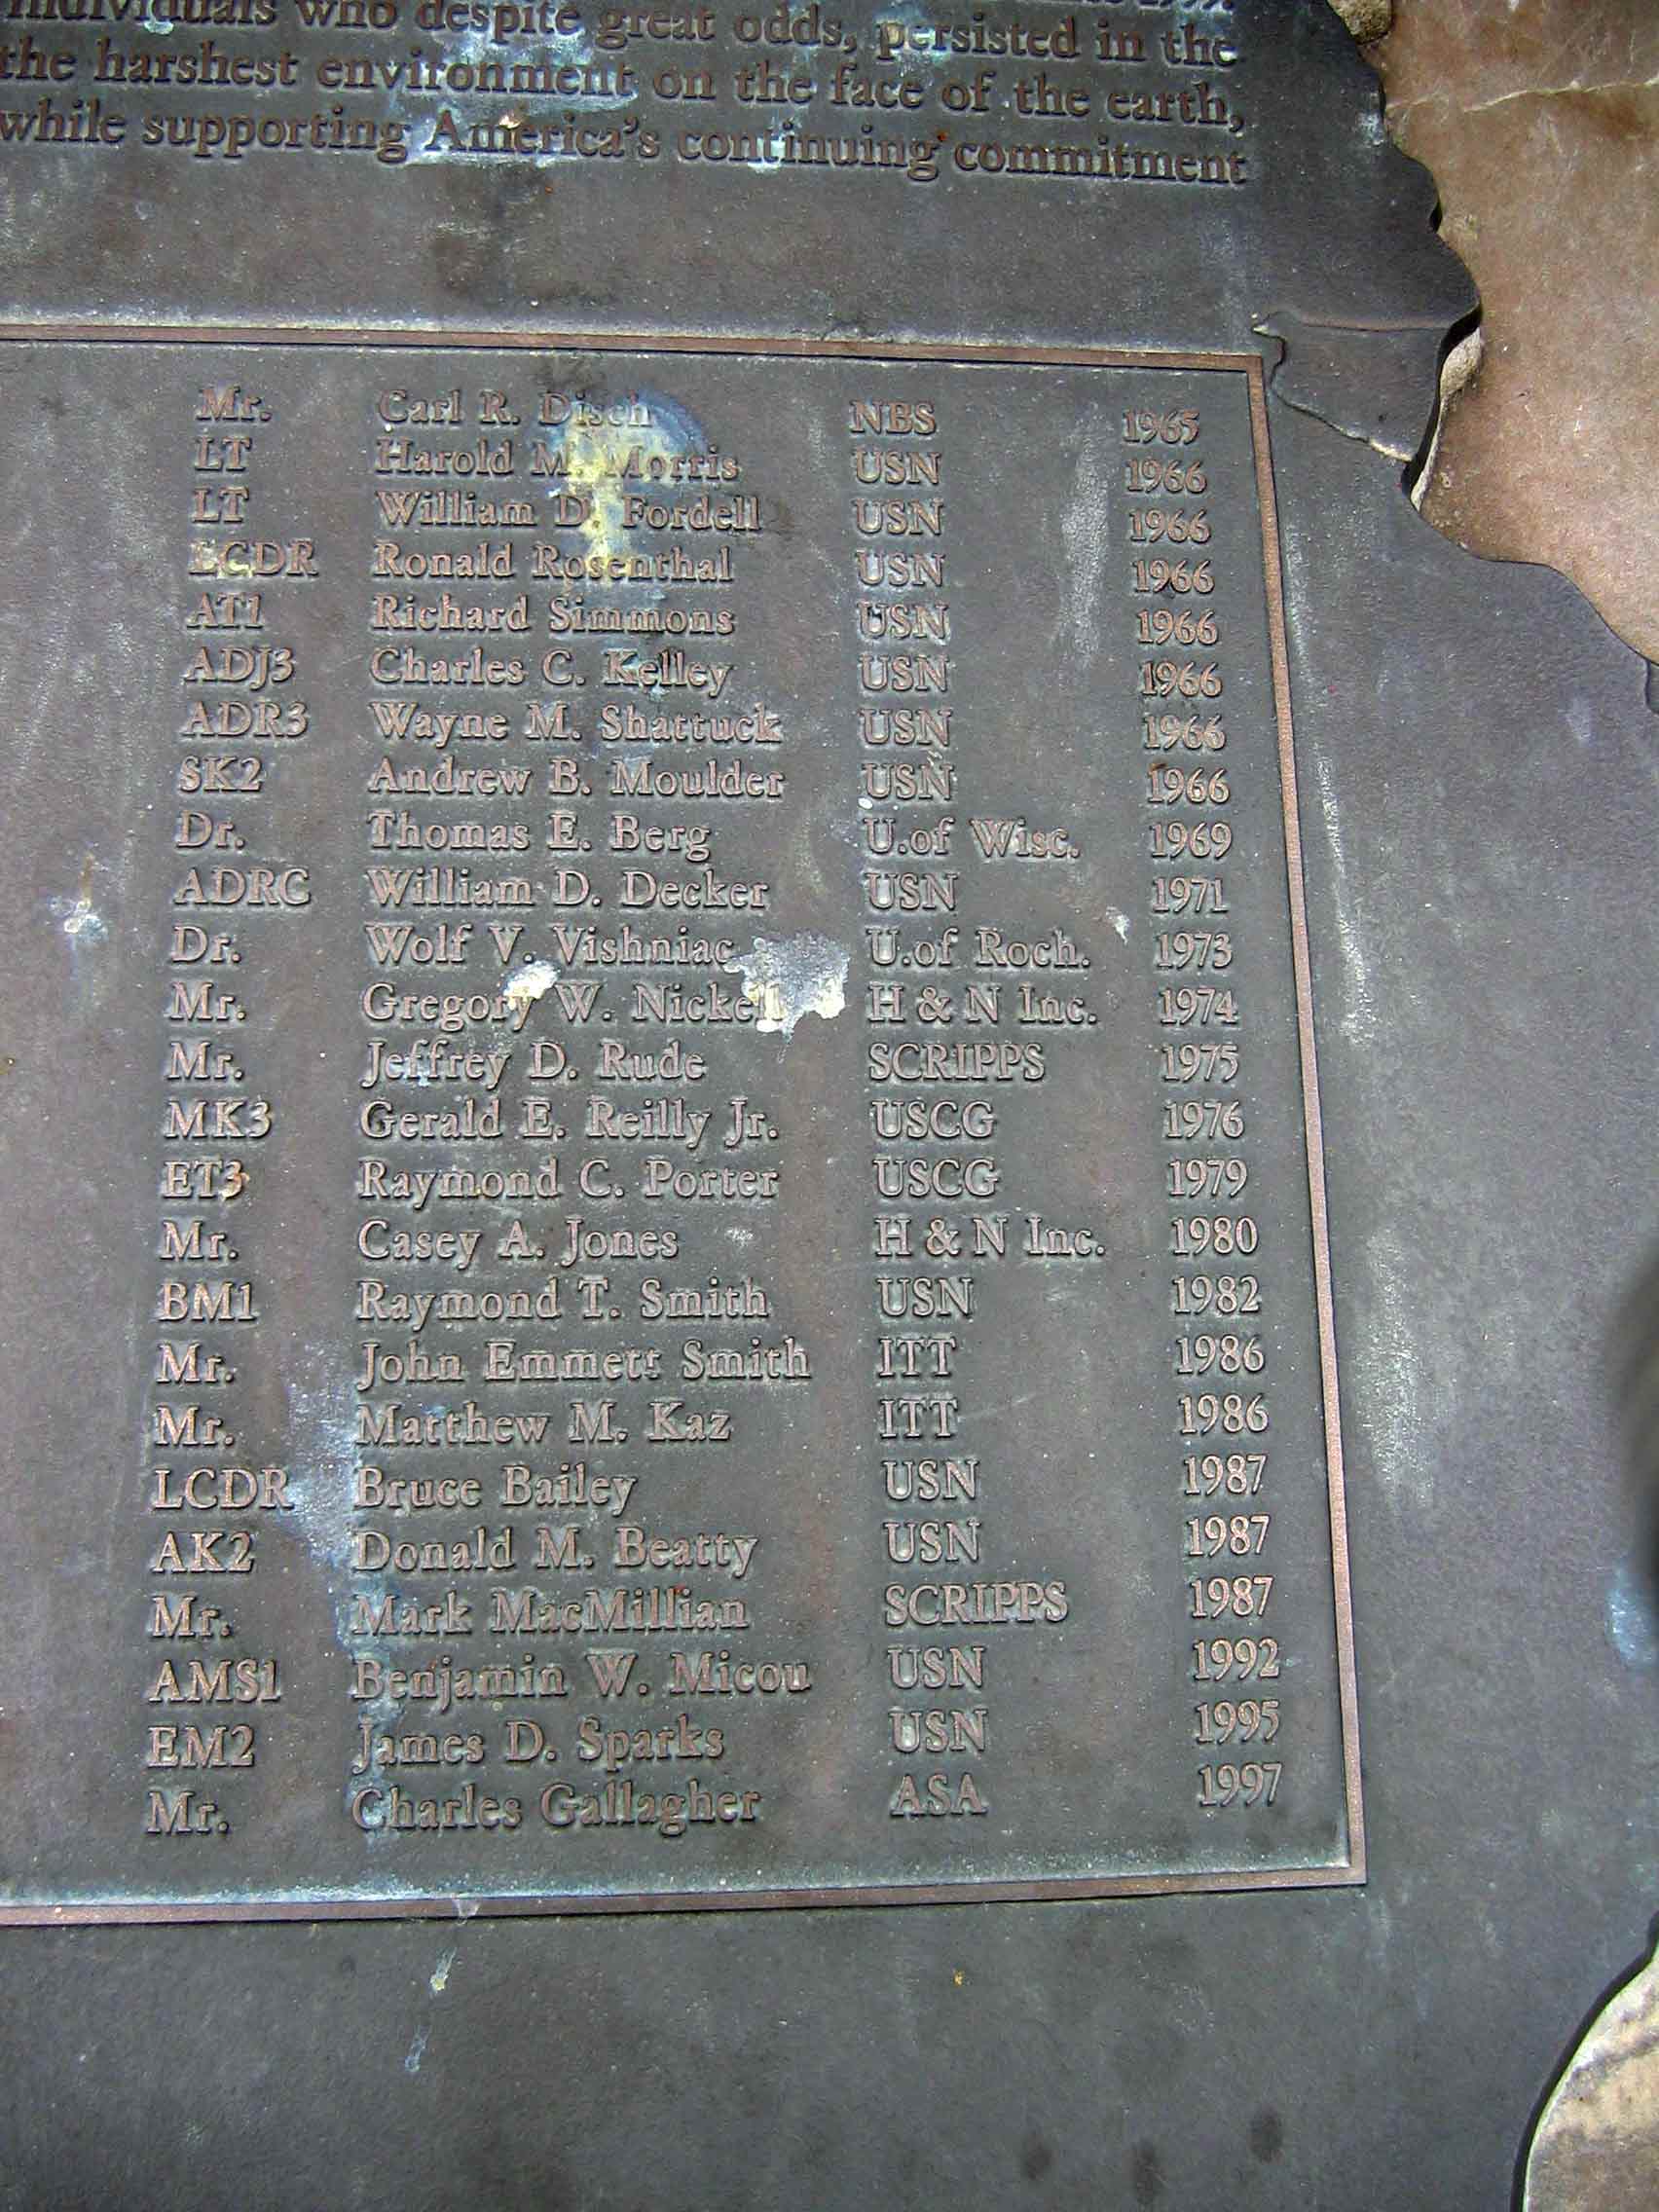 individuals who despite great odds, persisted in the
the harshest environment on the face of the earth,
while supporting America's continuing commitment
Mr. Carl R. Disch NBS 1965
LT Harold M. Morris USN 1966
LT William D. Fordell USN 1966
LCDR Ronald Rosenthal USN 1966
AT1 Richard Simmons USN 1966
ADJ3 Charles C. Kelley USN 1966
ADR3 Wayne M. Shattuck USN 1966
SK2 Andrew B. Moulder USN 1966
Dr. Thomas E. Berg U.of Wisc. 1969
ADRC William D. Decker USN 1971
Dr. Wolf V. Vishniac U.of Roch. 1973
Mr. Gregory W. Nickell H & N Inc. 1974
Mr. Jeffrey D. Rude SCRIPPS 1975
MK3 Gerald E. Reilly Jr. USCG 1976
ET3 Raymond C. Porter USCG 1979
Mr. Casey A. Jones H & N Inc. 1980
BM1 Raymond T. Smith USN 1982
Mr. John Emmett Smith ITT 1986
Mr. Matthew M. Kaz ITT 1986
LCDR Bruce Bailey USN 1987
AK2 Donald M. Beatty USN 1987
Mr. Mark MacMillian SCRIPPS 1987
AMS1 Benjamin W. Micou USN 1992
EM2 James D. Sparks USN 1995
Mr. Charles Gallagher ASA 1997